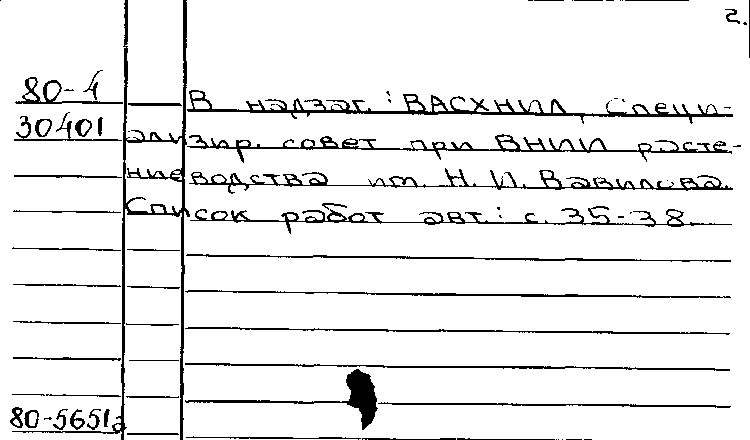 2.
80-4 В надзаг.: ВАСХНИЛ, Специ-
30401 ализир. совет при ВНИИ расте-
ниеводства им. Н. И. Вавилова.
Список работ авт.: с. 35-38.
80-5651а